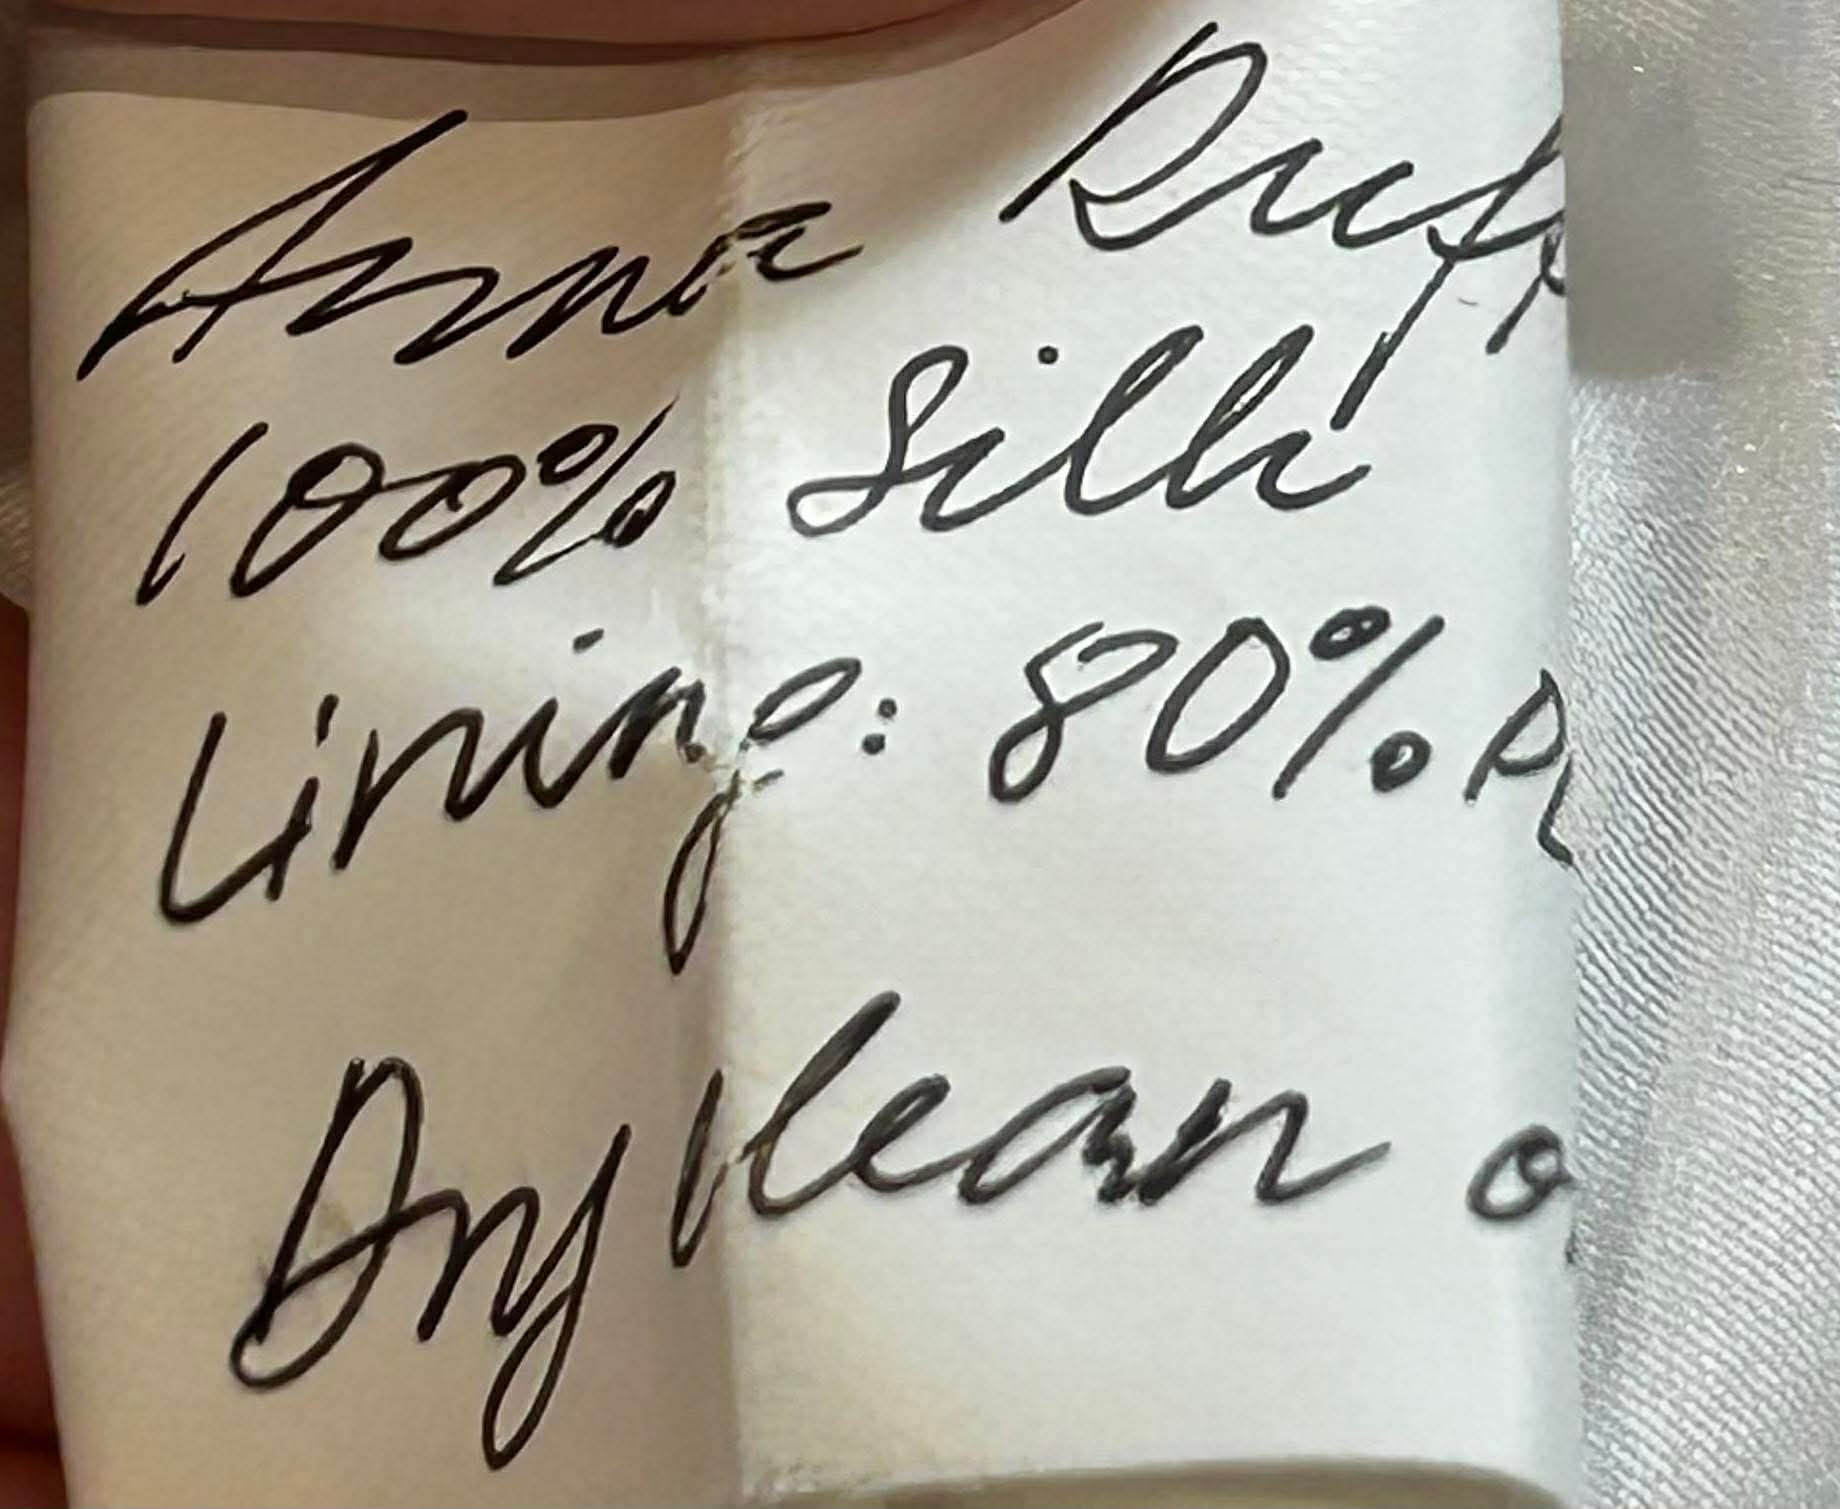 Anna
100% Silk
Lining: 80%
Dry clean